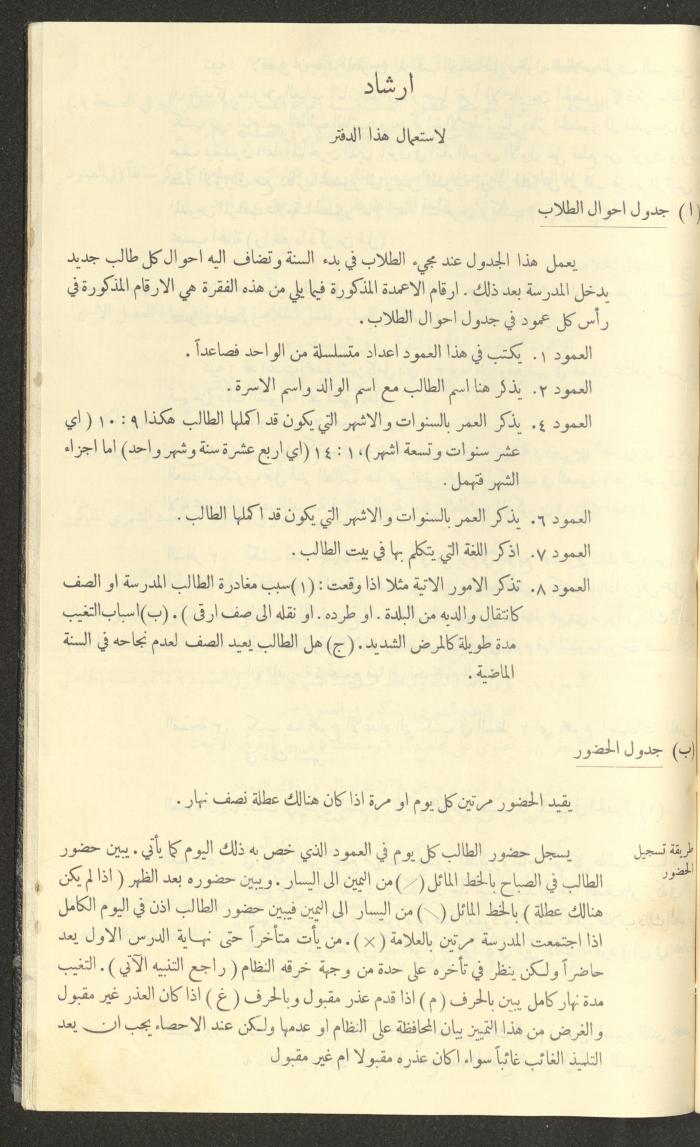 ارشاد
لاستعمال هذا الدفتر
(ا) جدول احوال الطلاب
يعمل هذا الجدول عند مجيء الطلاب في بدء السنة وتضاف اليه احوال كل طالب جديد
يدخل المدرسة بعد ذلك . ارقام الاعمدة المذكورة فيما يلي من هذه الفقرة هي الارقام المذكورة في
رأس كل عمود في جدول احوال الطلاب .
العمود ١. يكتب في هذا العمود اعداد متسلسلة من الواحد فصاعداً .
العمود ٢. يذكر هنا اسم الطالب مع اسم الوالد واسم الاسرة .
العمود ٤. يذكر العمر بالسنوات والاشهر التي يكون قد اكملها الطالب هكذا ٩ : ١٠ ( اي
عشر سنوات وتسعة اشهر )، ١ : ١٤ (اي اربع عشرة سنة وشهر واحد) اما اجزاء
الشهر فتهمل .
العمود ٦. يذكر العمر بالسنوات والاشهر التي يكون قد اكملها الطالب .
العمود ٧. اذكر اللغة التي يتكلم بها في بيت الطالب .
العمود ٨. تذكر الامور الاتية مثلا اذا وقعت : (١) سبب مغادرة الطالب المدرسة او الصف
كانتقال والديه من البلدة . او طرده . او نقله الى صف ارقى ) . (ب) اسباب التغيب
مدة طويلة كالمرض الشديد . (ج) هل الطالب يعيد الصف لعدم نجاحه في السنة
الماضية .
(ب) جدول الحضور
يقيد الحضور مرتين كل يوم او مرة اذا كان هنالك عطلة نصف نهار .
طريقة تسجيل
الحضور
يسجل حضور الطالب كل يوم في العمود الذي خص به ذلك اليوم كما يأتي . يبين حضور
الطالب في الصباح بالخط المائل (/) من اليمين الى اليسار . ويبين حضوره بعد الظهر ( اذا لم يكن
هنالك عطلة ) بالخط المائل (\) من اليسار الى اليمين فيبين حضور الطالب اذن في اليوم الكامل
اذا اجتمعت المدرسة مرتين بالعلامة (×) . من يأت متأخراً حتى نهاية الدرس الاول يعد
حاضراً ولكن ينظر في تأخره على حدة من وجهة خرقه النظام ( راجع التنبيه الآتي ) . التغيب
مدة نهار كامل يبين بالحرف ( م ) اذا قدم عذر مقبول وبالحرف ( غ ) اذا كان العذر غير مقبول
والغرض من هذا التمييز بيان المحافظة على النظام او عدمها ولكن عند الاحصاء يجب ان يعد
التلميذ الغائب غائباً سواء اكان عذره مقبولا ام غير مقبول